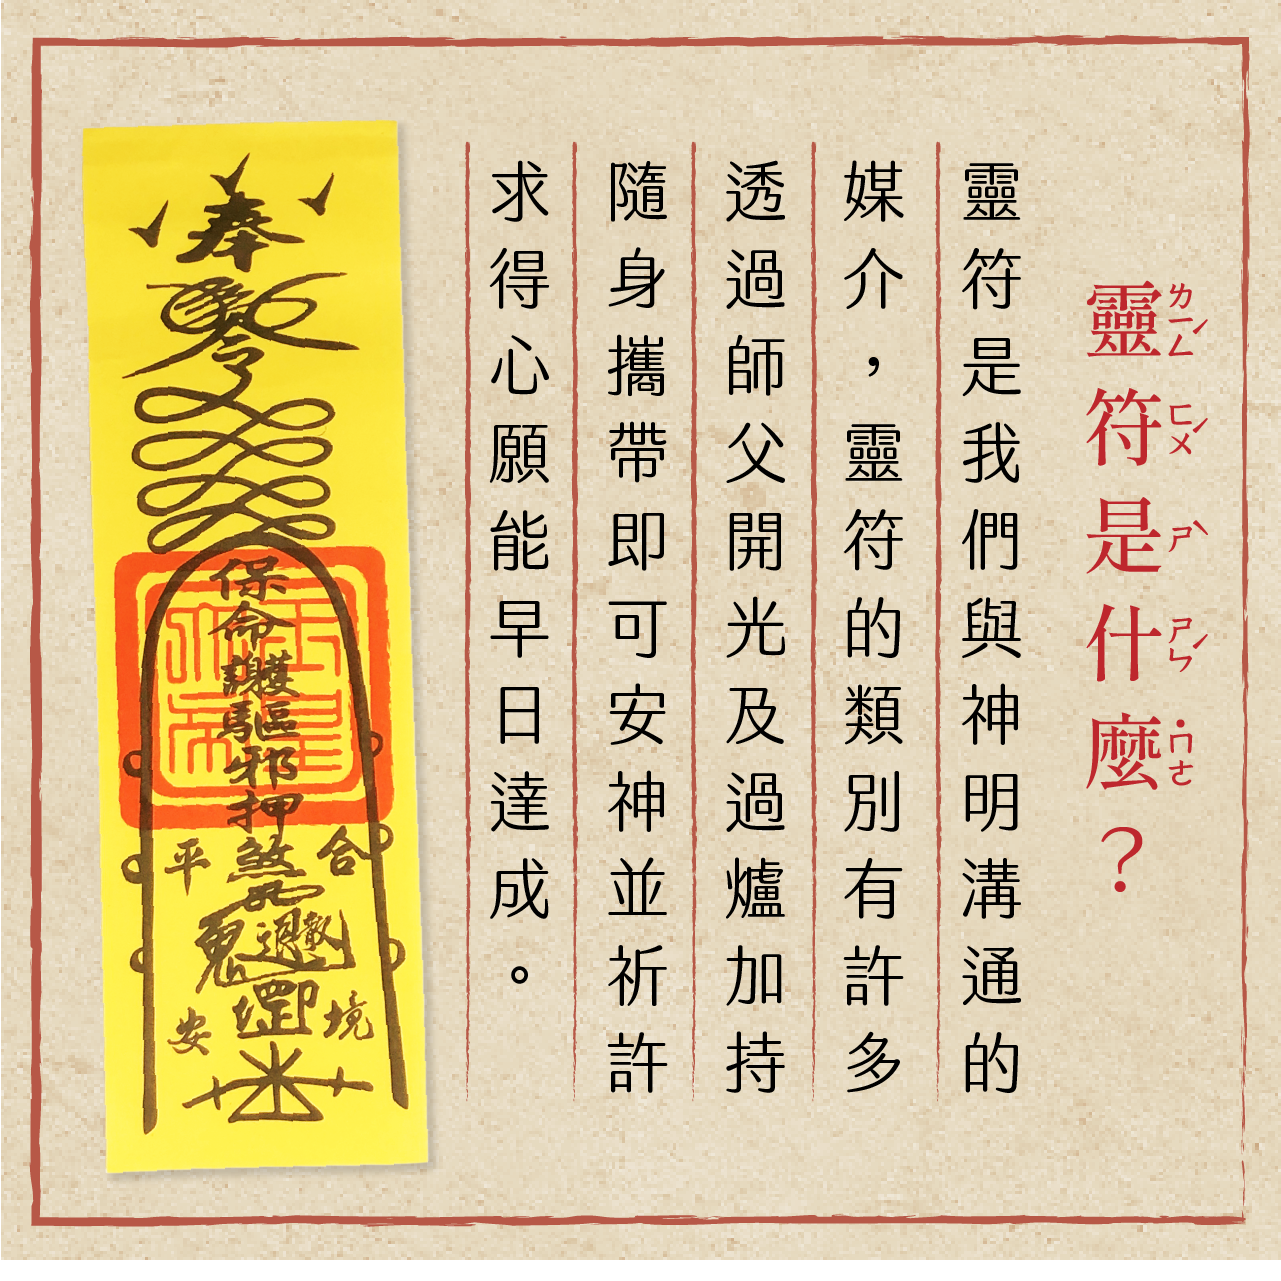 靈符是什麼？
ㄌㄧㄥˊ ㄈㄨˊ ㄕˋ ㄕㄣˊ ˙ㄇㄜ
靈符是我們與神明溝通的
媒介，靈符的類別有許多
透過師父開光及過爐加持
隨身攜帶即可安神並祈許
求得心願能早日達成。
奉
令
保命護驅邪押煞
合
平
鬼
境
安